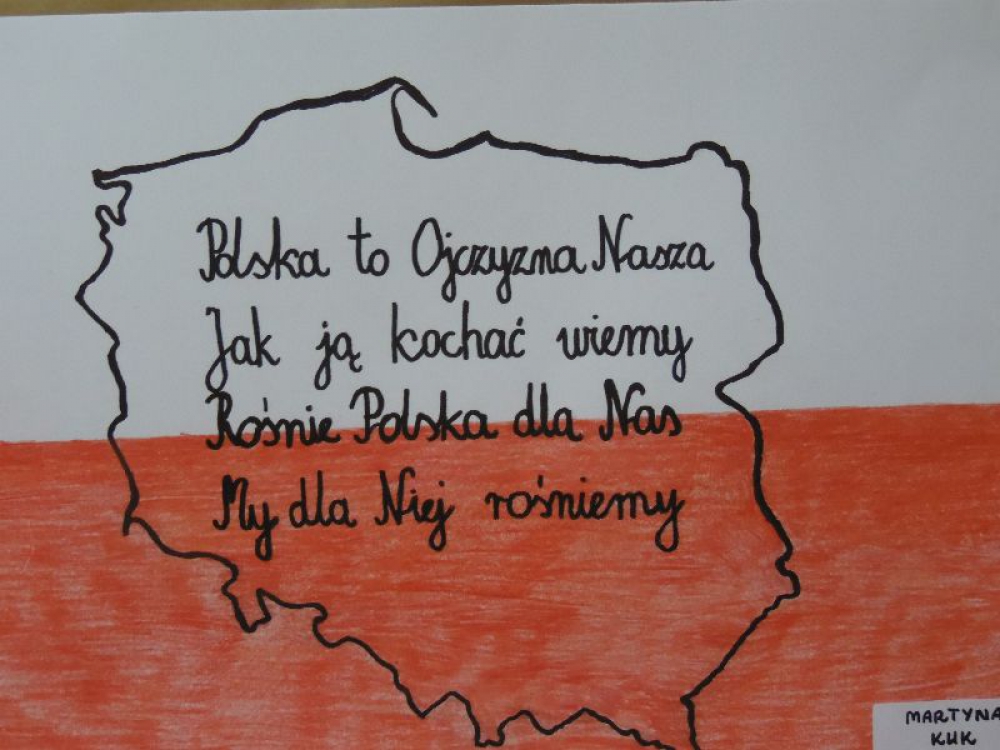 Polska to Ojczyzna Nasza
Jak ją kochać wiemy
Rośnie Polska dla Nas
My dla Niej rośniemy
MARTYNA
KUK